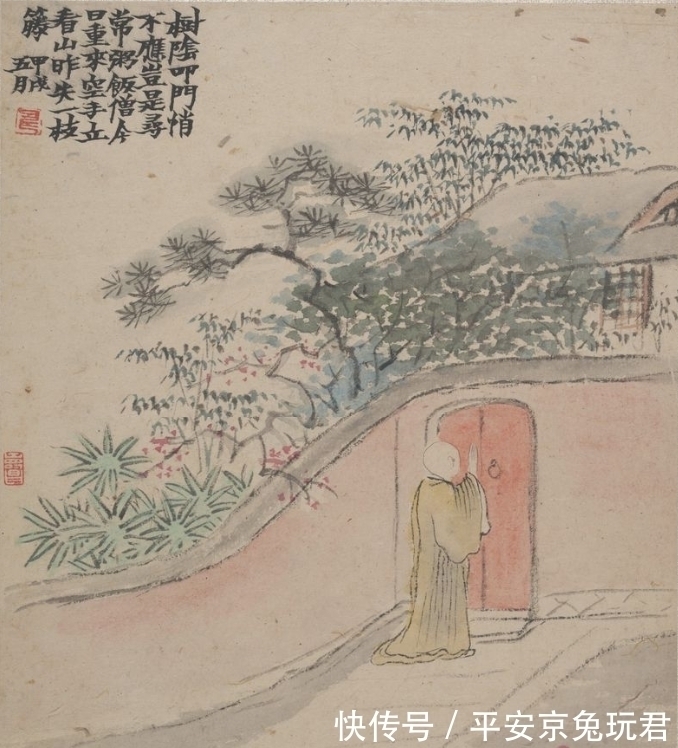 樹陰叩門悄
不應豈是尋
常粥飯僧今
日重來空手立
看山昨失一枝
籐
甲戌
五月
快传号 / 平安京兔玩君